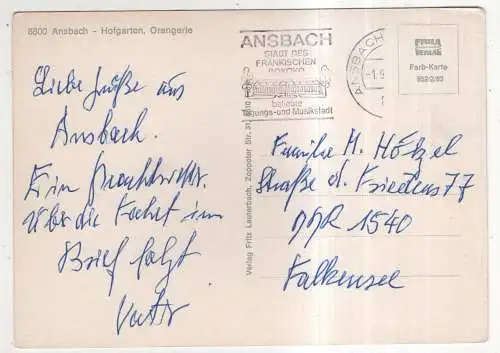 8800 Ansbach - Hofgarten, Orangerie
Liebe Grüße aus
Ansbach.
Ein
über die Fahrt im
Brief folgt
Vater
ANSBACH
STADT DES
FRÄNKISCHEN
ROKOKO
beliebte
Tagungs-und Musikstadt
ANSBACH
FRILA
VERLAG
Farb-Karte
Verlag Fritz Lauterbach, Zoppoter Str. 31
Familie H. Hötzel
Straße d. Friedens 77
DDR 1540
Falkensee